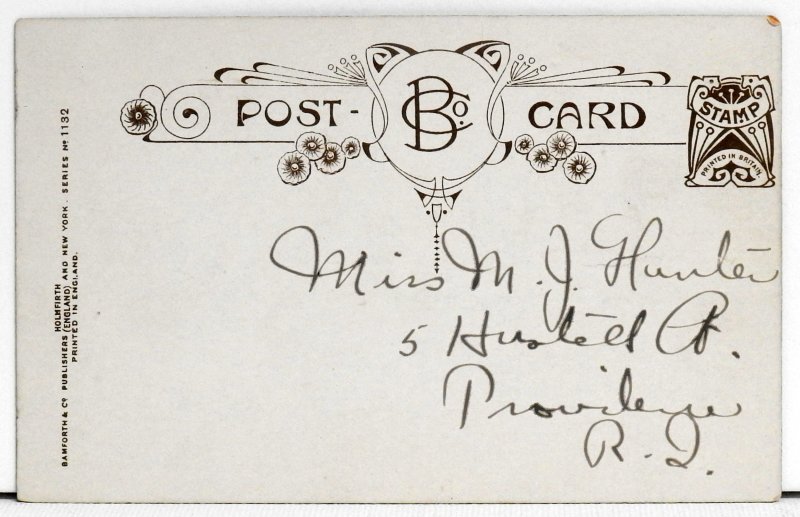 POST-
BCo.
CARD
STAMP
PRINTED IN BRITAIN.
BAMFORTH & Co PUBLISHERS HOLMFIRTH (ENGLAND) AND NEW YORK. SERIES No 1132
PRINTED IN ENGLAND.
Miss M. J. Hunter
5
Providence
R. I.